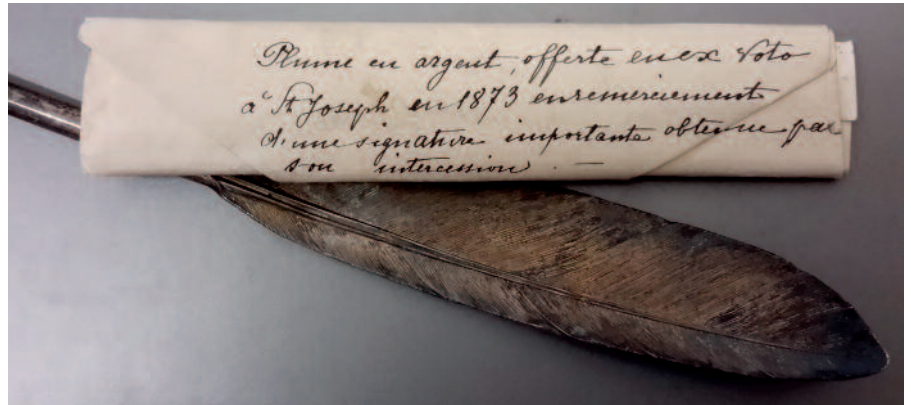 Plume en argent, offerte en ex voto
à St Joseph en 1873 en remerciement
d'une signature importante obtenue par
son intercession. —